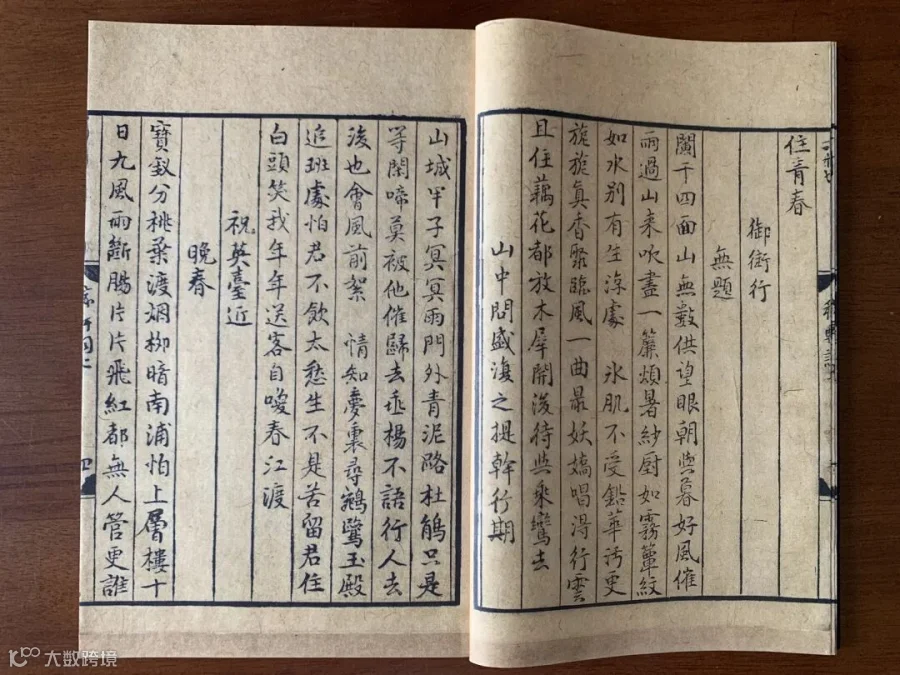 住青春
御街行
無題
闌干四面山無數供望眼朝與暮好風催
雨過山来吹盡一簾煩暑紗厨如霧簟紋
如水别有生凉處 氷肌不受鉛華污更
旎旎真香聚臨風一曲最妖嬌唱得行雲
且住藕花都放木犀開後待與乘鸞去
山中問盛復之提幹行期
山城甲子冥冥雨門外青泥路杜鵑只是
等閑啼莫被他催歸去垂楊不語行人去
後也會風前絮 情知夢裏尋鵷鷺玉殿
追班處怕君不飲太愁生不是苦留君住
白頭笑我年年送客自喚春江渡
祝英臺近
晚春
寶釵分桃葉渡烟柳暗南浦怕上層樓十
日九風雨斷腸片片飛紅都無人管更誰
大数跨境